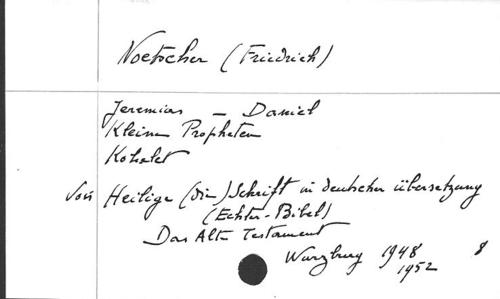 Noetscher (Friedrich)
Jeremias — Daniel
Kleine Propheten
Kohalet
Voir Heilige (Die) Schrift in deutscher übersetzung
(Echter-Bibel)
Das Alte Testament
Wurzburg 1948 8
1952